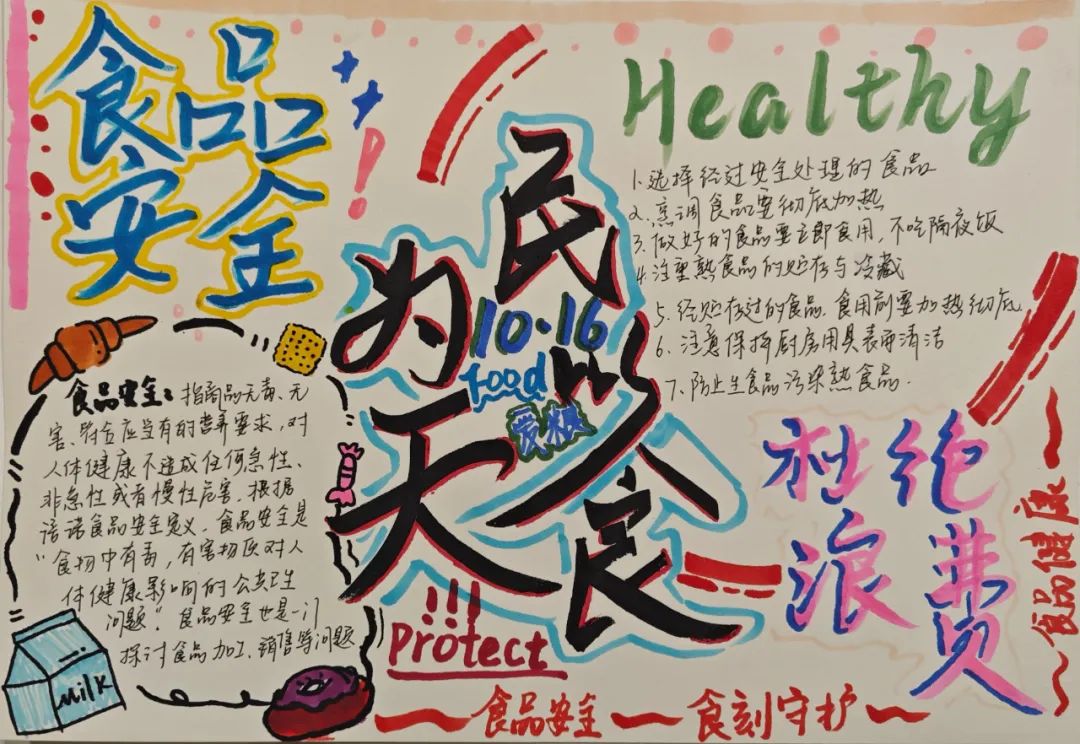 食品
安全
Healthy
1.选择经过安全处理的食品
2.烹调食品要彻底加热
3.做好的食品要立即食用,不吃隔夜饭
4.注重熟食品的贮存与冷藏
5.经贮存过的食品.食用前要加热彻底
6.注意保持厨房用具表面清洁
7.防止生食品污染熟食品.
民以食
为天
10·16
food
爱粮
食品安全:指商品无毒、无
害、符合应当有的营养要求,对
人体健康不造成任何急性、
非急性或者慢性危害.根据
食品安全定义,食品安全是
“食物中有毒,有害物质对人
体健康影响的公共卫生
问题”.食品安全也是一门
探讨食品加工、销售等问题
milk
Protect
!!!
杜绝
浪费
食品健康
食品安全
食刻守护